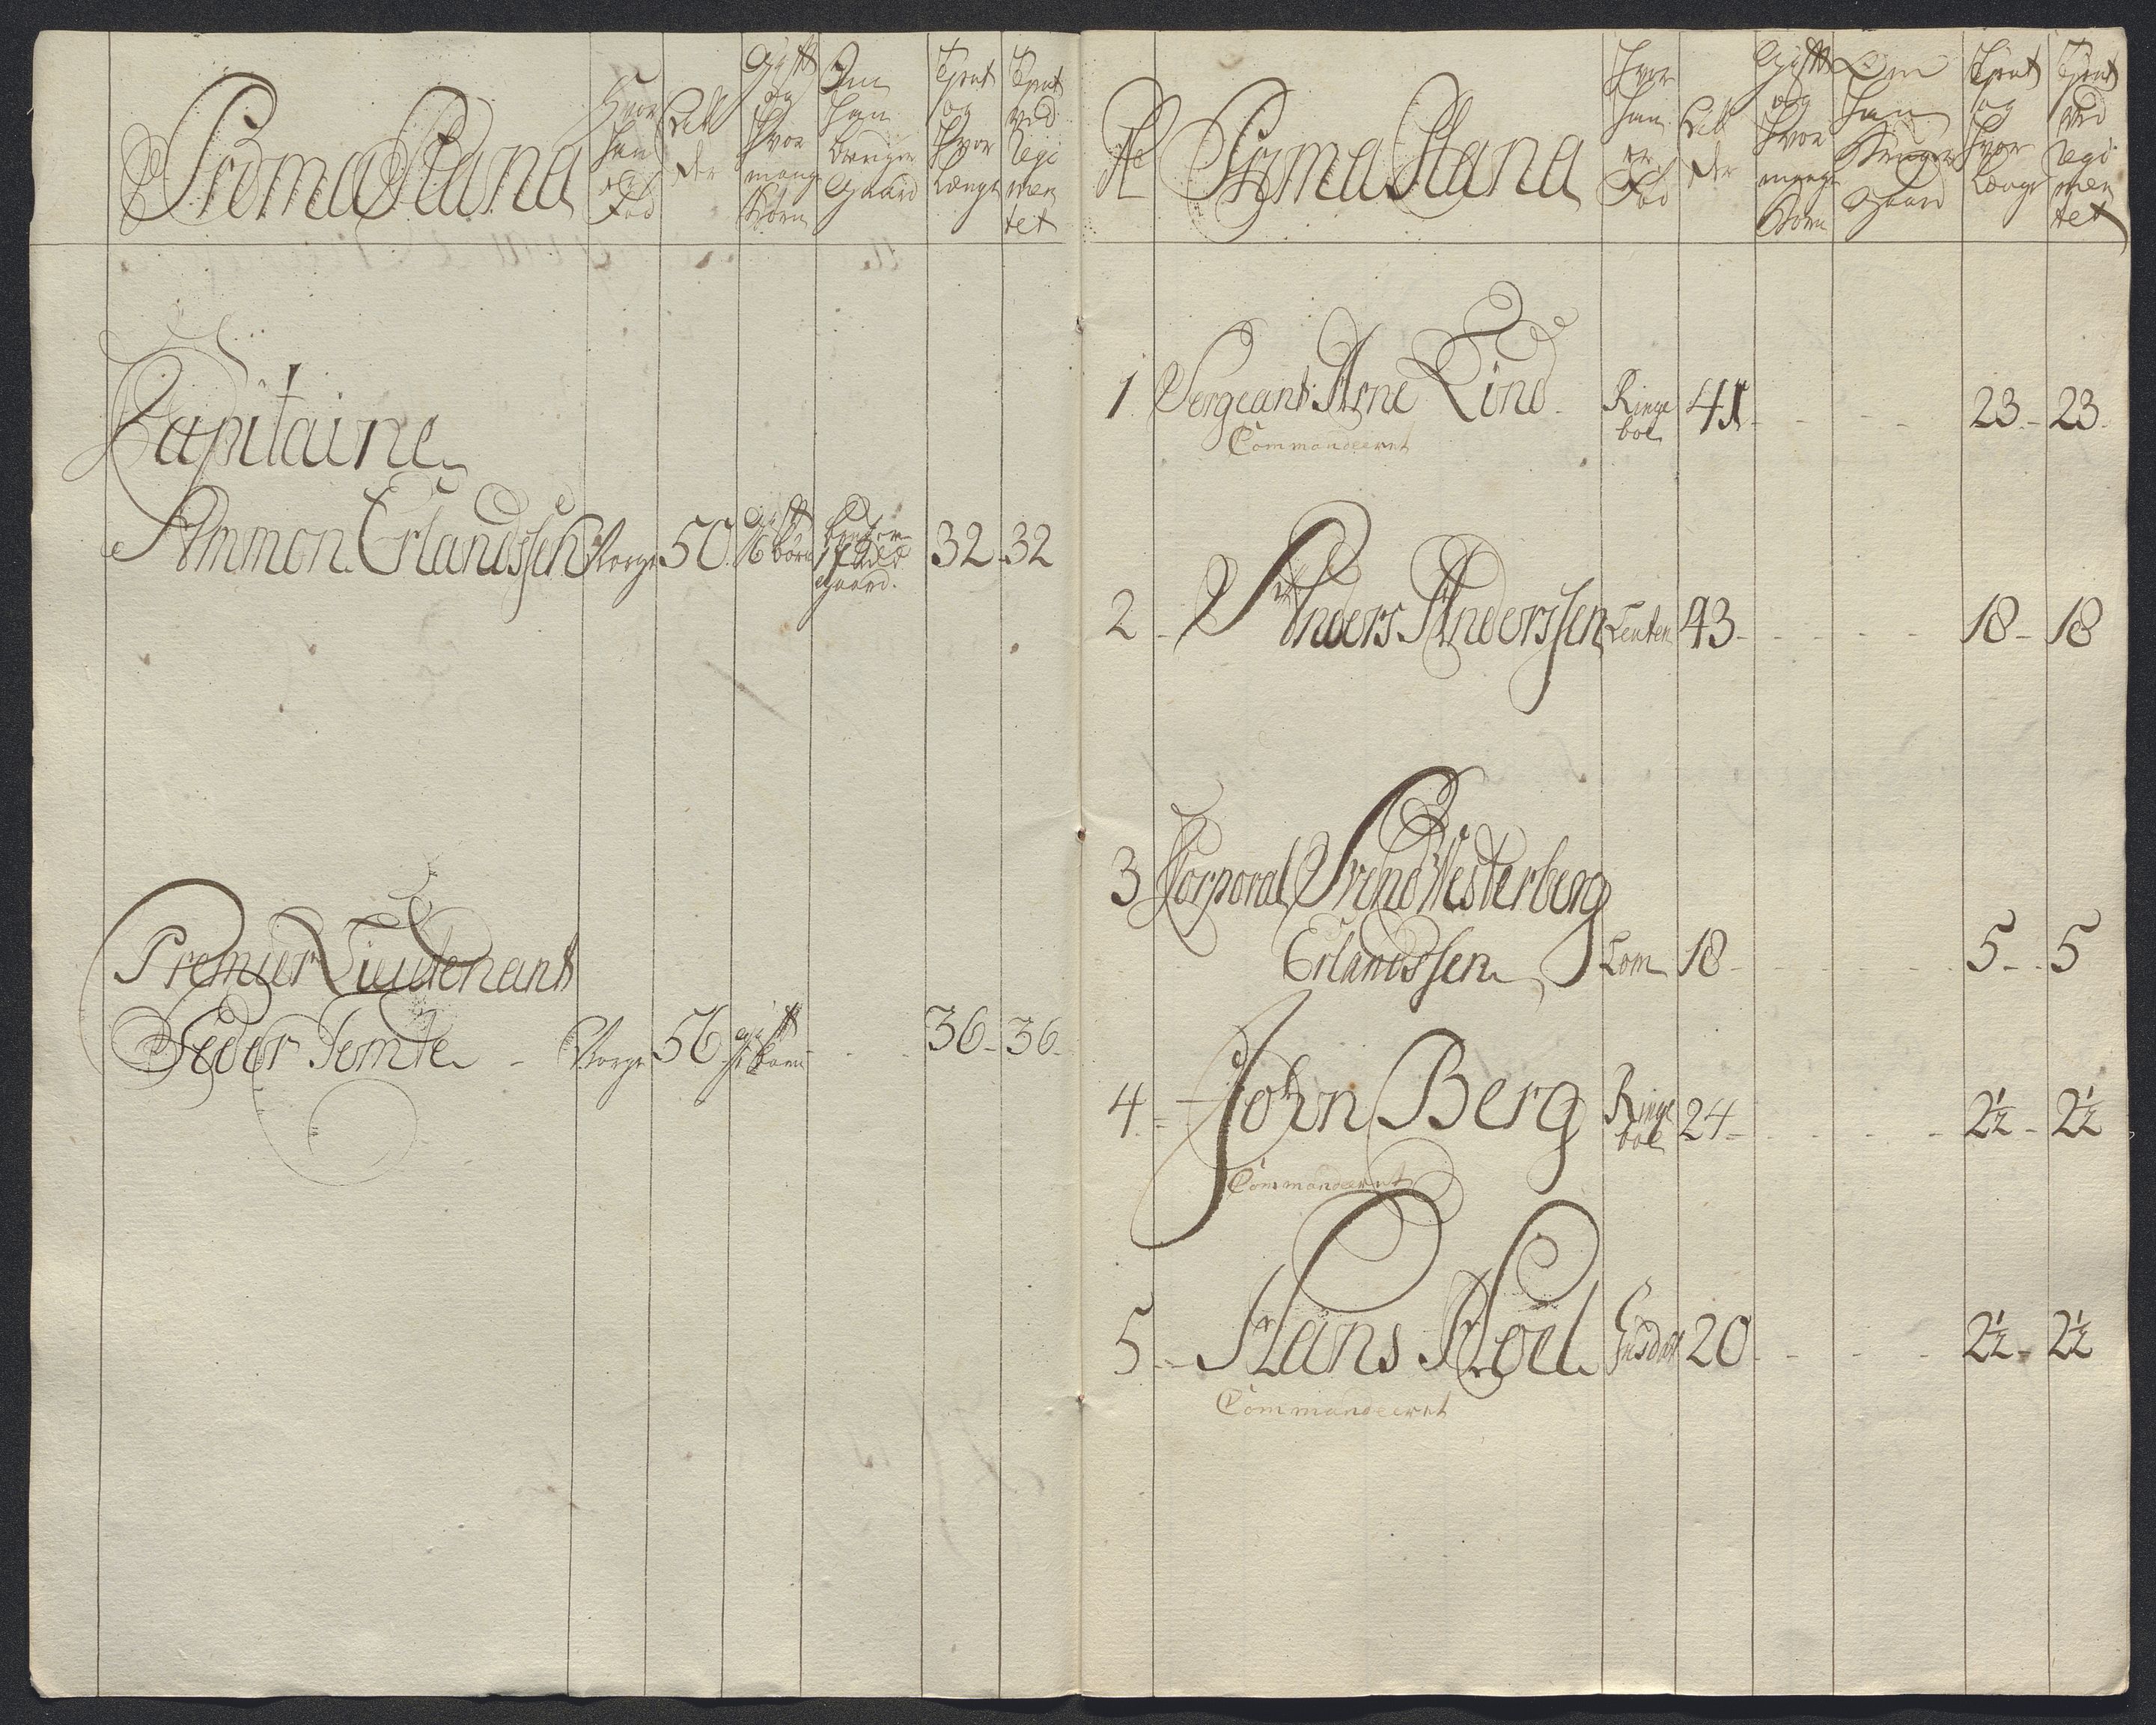 Prima Plana
Hvor han er Fød
Alder
Gift og Hvor mange Børn
Om han bruger Gaard
Tient og Hvor Længe
Tient ved Regimentet
Capitaine
Ammon Erlandssen Norge 50 gift 6 børn gaard. 32 32
Premier Lieutenant
Peder Tomte - Norge 56 gift børn 36 - 36
No Prima Plana
Hvor han er Fød
Alder
Gift og Hvor mange Børn
Om han bruger Gaard
Tient og Hvor Længe
Tient ved Regimentet
1 Sergeant Arne Lind Ringeboe 41 - - - 23 - 23
Commandeeret
2 - Anders Anderssen 43 - - - 18 - 18
3 Corporal Svend Westerberg
Erlandssen Lom 18 - - - 5 - 5
4 - John Berg Ringeboe 24 - - - 2½ - 2½
Commandeeret
5 - Hans Hoel 20 - - - 2½ - 2½
Commandeeret